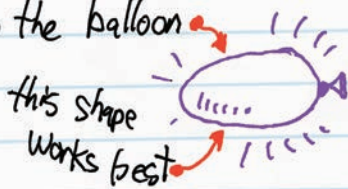 the balloon
this shape
works best